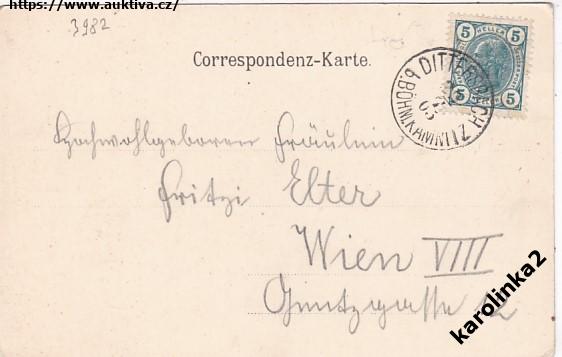 https://www.auktiva.cz/
3982
Correspondenz-Karte.
5 HELLER 5
5 5
DITTERSBACH
b. BÖHM. KAMNITZ
03
Hochwohlgeboren Fräulein
Fritzi Elter
Wien VIII
12
karolinka2